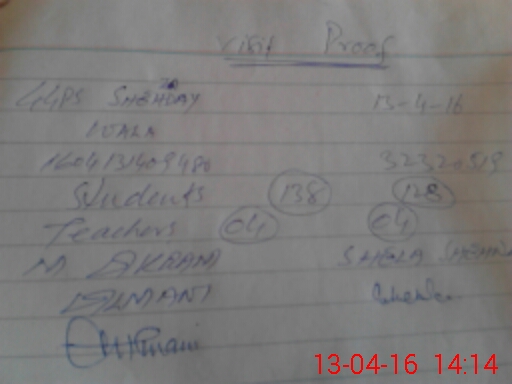 Visit Proof
GGPS SHEHDAY 13-4-16
WALA
1604131409480 32320519
Students 138 128
Teachers 04 04
M AKRAM SHEILA
USMANI
13-04-16 14:14